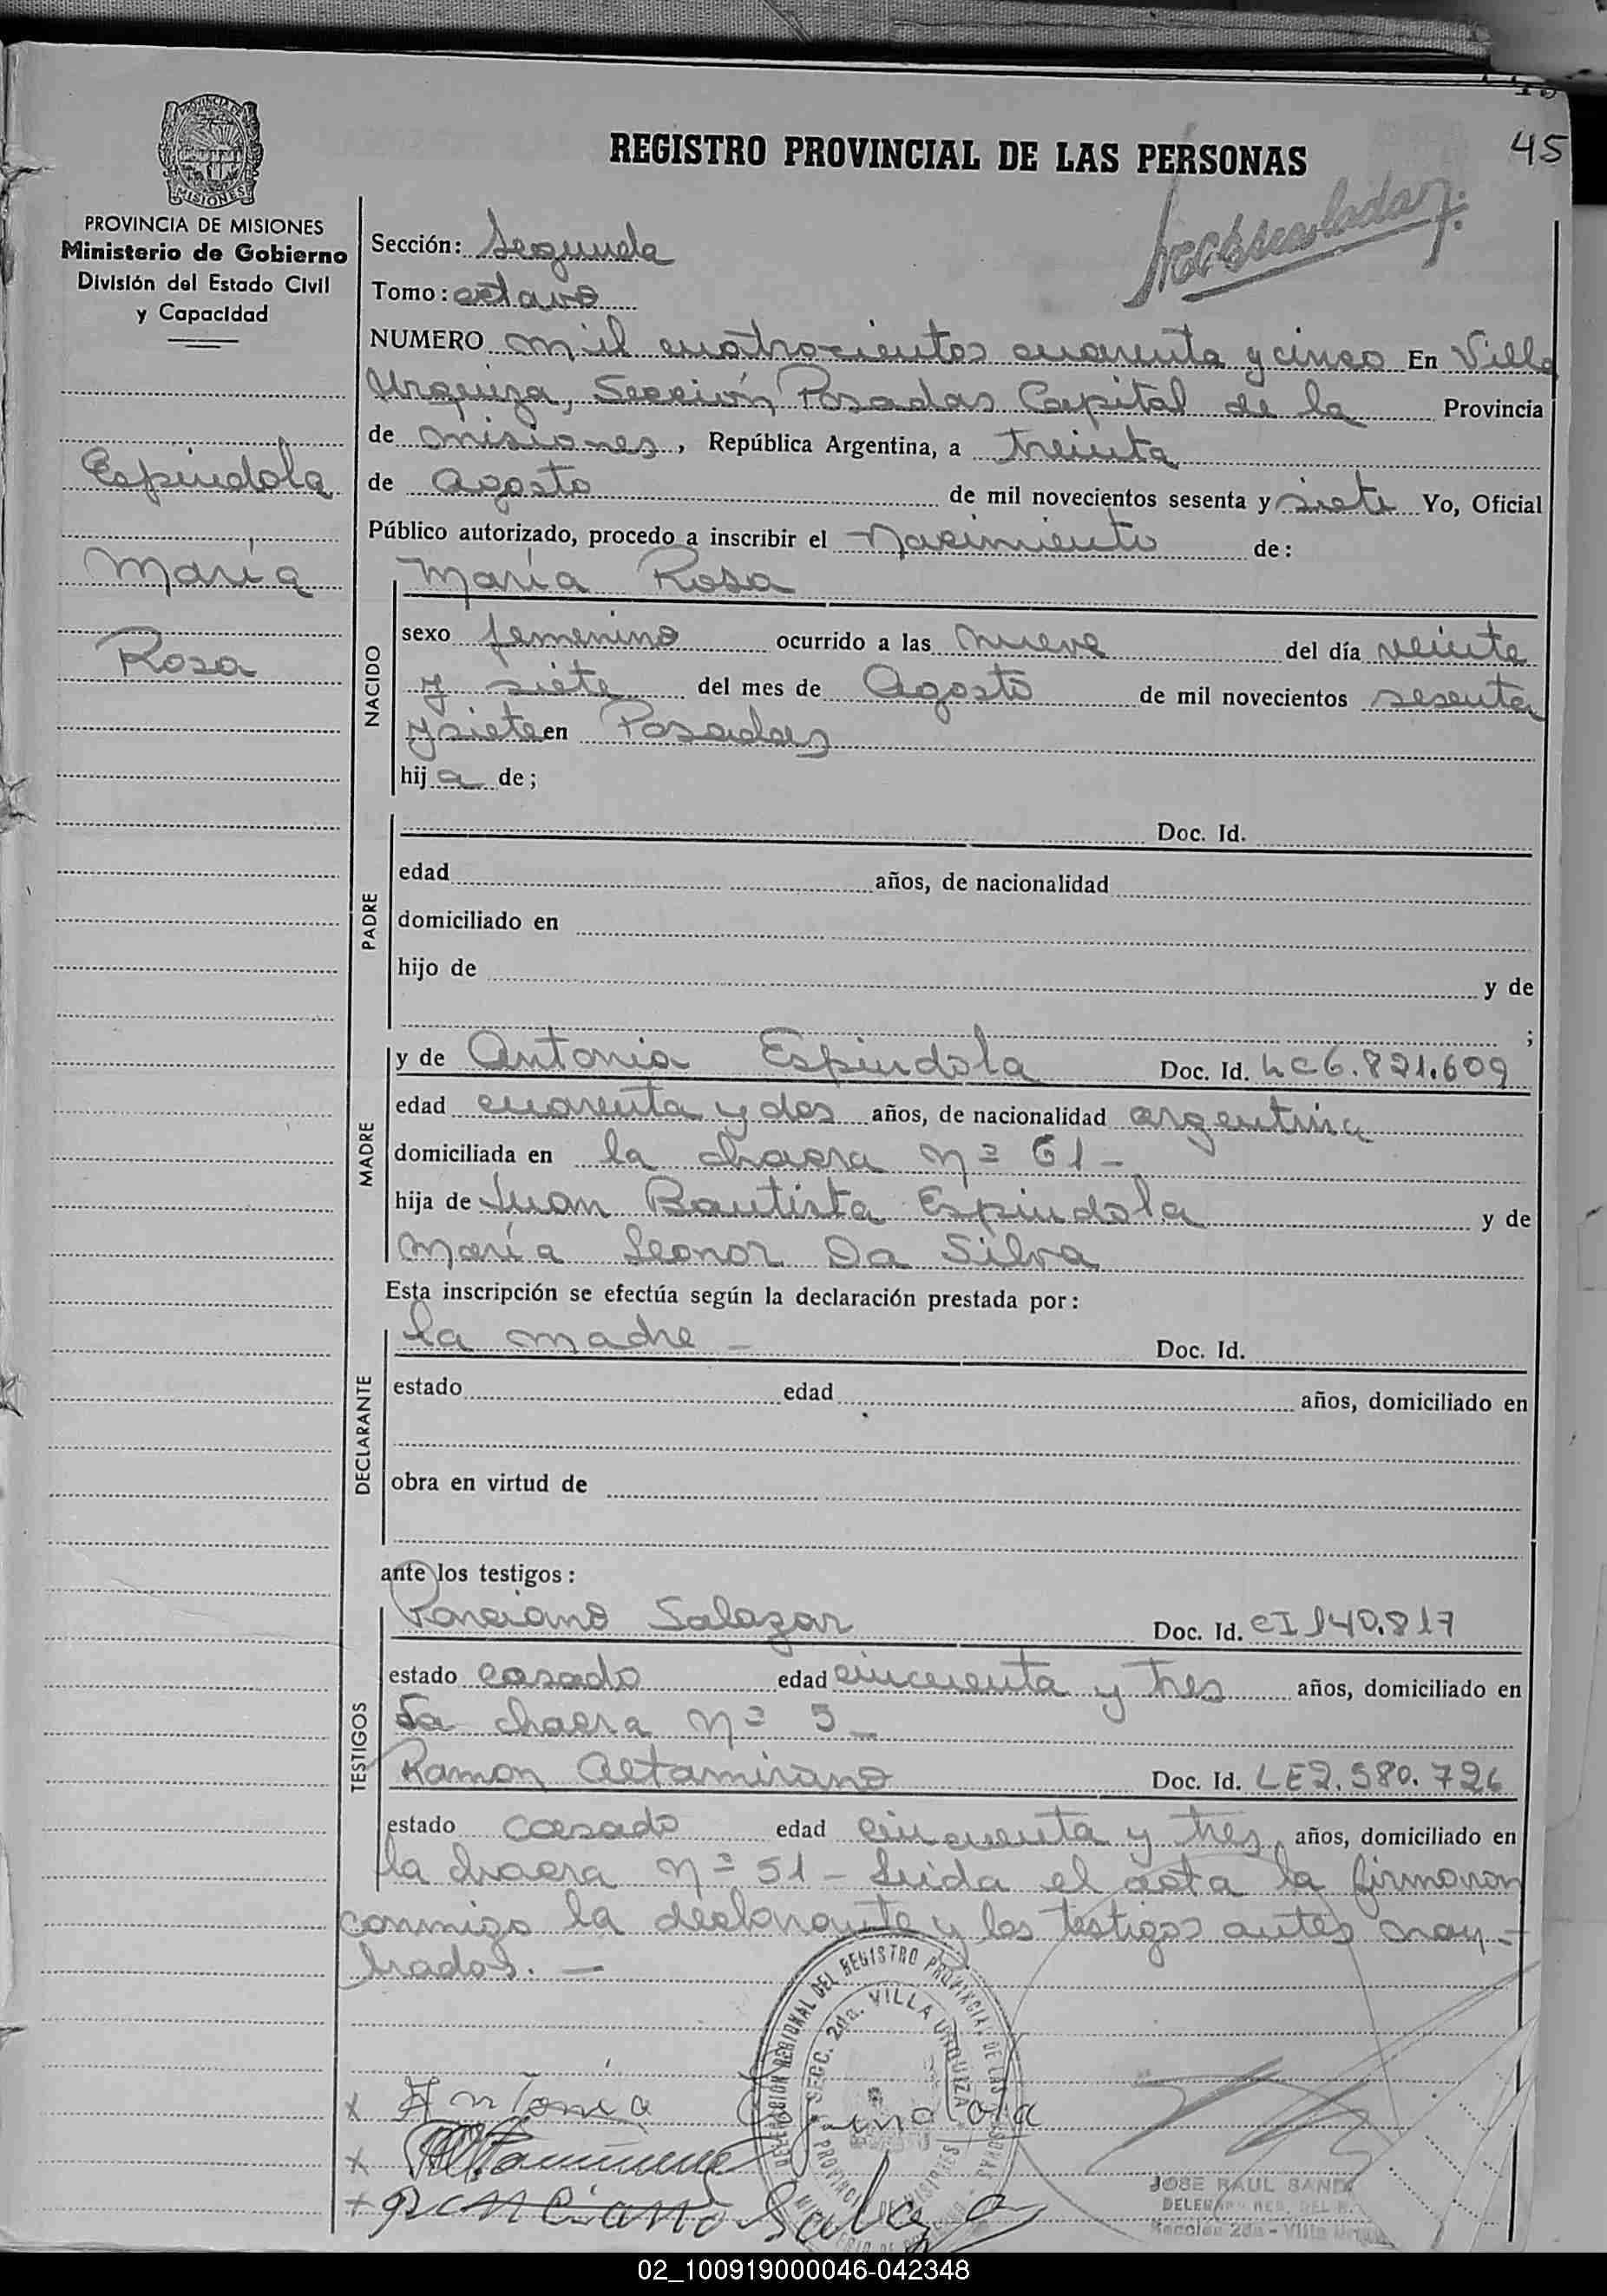 45
REGISTRO PROVINCIAL DE LAS PERSONAS
MISIONES
PROVINCIA DE MISIONES
Ministerio de Gobierno
División del Estado Civil
y Capacidad
Espíndola
María
Rosa
Sección: Segunda
Tomo: octavo
NUMERO mil cuatrocientos cuarenta y cinco En Villa
Urquiza, Sección, Posadas Capital de la Provincia
de misiones, República Argentina, a treinta
de Agosto de mil novecientos sesenta y siete Yo, Oficial
Público autorizado, procedo a inscribir el Nacimiento de:
NACIDO
María Rosa
sexo femenino ocurrido a las nueve del día veinte
y siete del mes de Agosto de mil novecientos sesenta
y siete en Posadas
hij a de;
PADRE
Doc. Id.
edad años, de nacionalidad
domiciliado en
hijo de y de
;
MADRE
y de Antonia Espindola Doc. Id. LC 6.821.609
edad cuarenta y dos años, de nacionalidad argentina
domiciliada en la chacra nº 61 -
hija de Juan Bautista Espindola y de
María Leonor Da Silva
Esta inscripción se efectúa según la declaración prestada por:
DECLARANTE
la madre - Doc. Id.
estado edad años, domiciliado en
obra en virtud de
ante los testigos:
TESTIGOS
Ponciano Salazar Doc. Id. CI 140.817
estado casado edad cincuenta y tres años, domiciliado en
La chacra nº 5 -
Ramon Altamirano Doc. Id. LE 2.580.726
estado casado edad cincuenta y tres, años, domiciliado en
la chacra nº 51 - Leida el acta la firmaron
conmigo la declarante y los testigos antes nom-
brados. -
DELEGACION REGIONAL DEL REGISTRO PROVINCIAL DE LAS PERSONAS
SECC. 2da. VILLA URQUIZA
PROVINCIA DE MISIONES
x Antonia Espindola
x
+ Ponciano Salazar
JOSE RAUL
Sección 2da - Villa
02_100919000046-042348